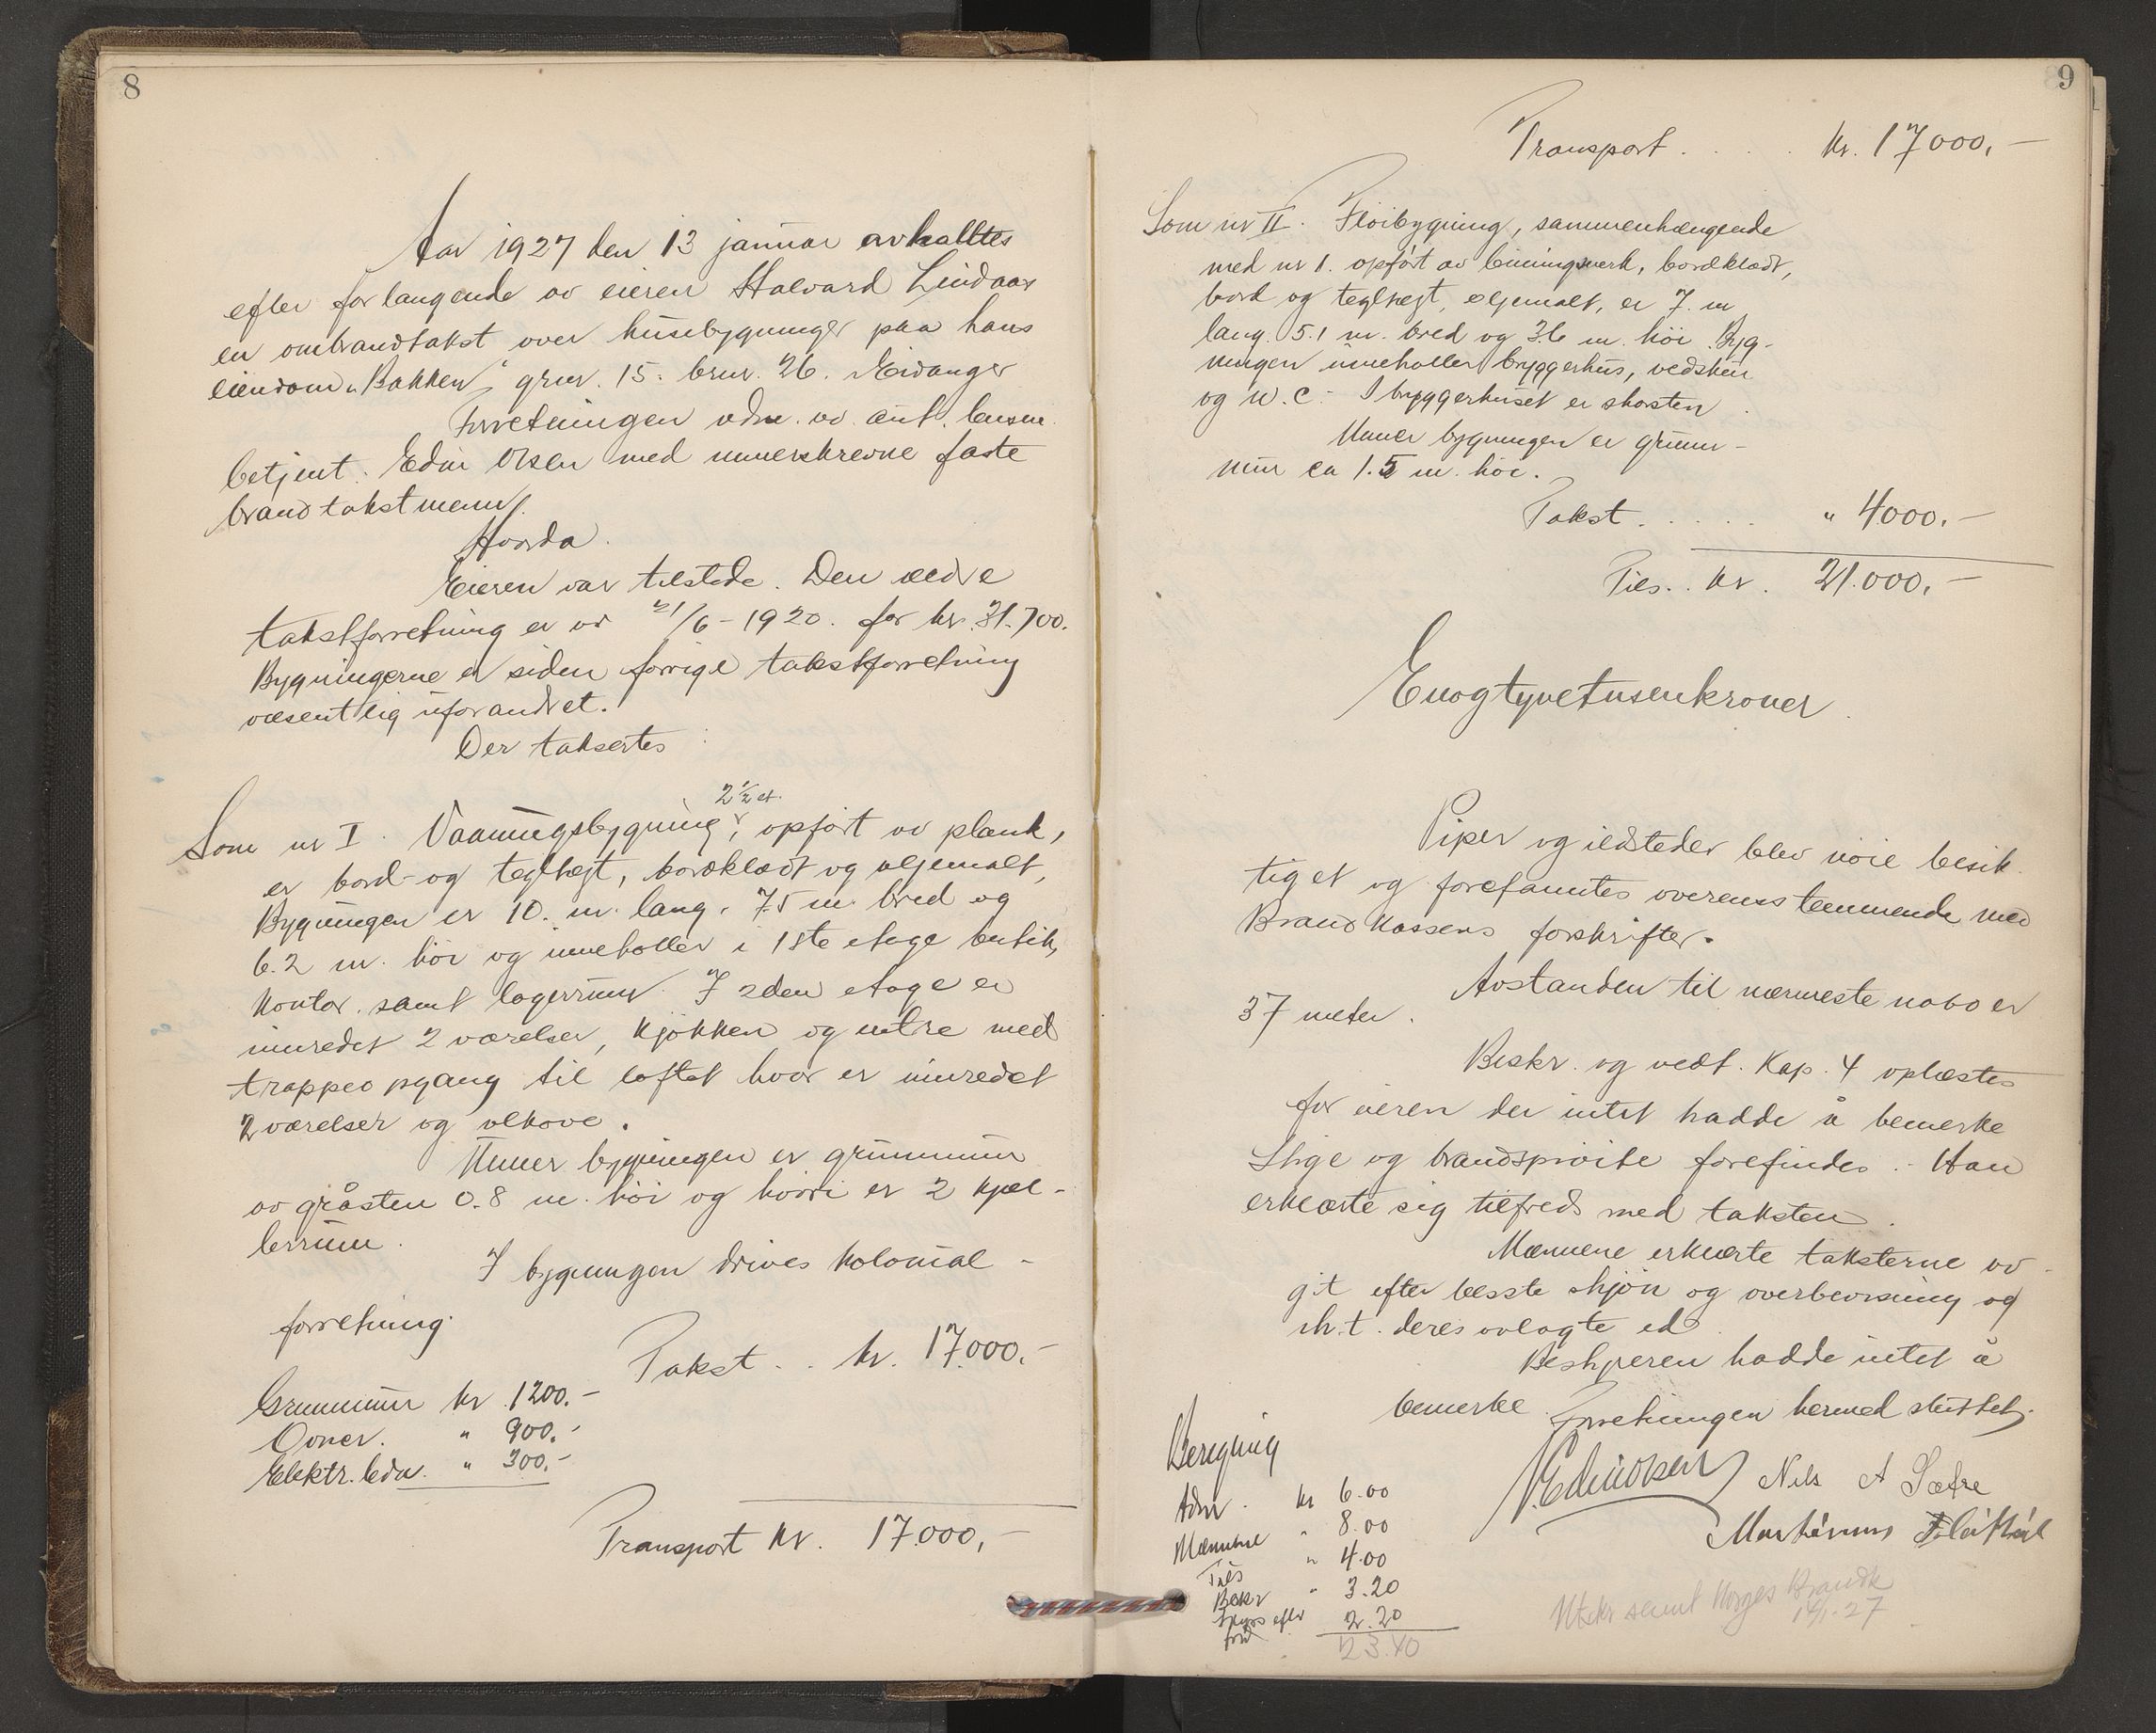 8
Aar 1927 den 13 januar avholltes
efter forlangende av eieren Halvard Lindaas
en ombrandtakst over husebygninger paa hans
eiendom „Bakken", grnr. 15. brnr. 26. i Eidanger
Forretningen adm. av aut. lensm.
betjent. Edin Olsen med unnerskrevne faste
brandtakstmenn.
Hvorda.
Eieren var tilstede. Den ældre
takstforretning er av 21/6 - 1920. for kr. 31.700.
Bygningerne er siden forrige takstforretning
væsentlig uforandret.
Der taksertes:
2 1/2 et.
Som nr I. Vaaningsbygning, opført av plank,
er bord- og teglhegt, bordklædt og oljemalt,
Bygningen er 10. m. lang, 7.5 m. bred og
6.2 m. höi og inneholler i 1ste etage butik,
kontor. samt lagerrum. I 2den etage er
innredet 2 værelser, kjökken og entre med
trappeopgang til loftet hvor er innredet
2 værelser og alkove.
Unner bygningen er grunnmur
av gråsten 0.8 m. höi og hvori er 2 kjel-
lerrum.
I bygningen drives kolonial-
forretning.
Takst . . kr. 17.000.-
Grunnmur kr 1200.-
Ovner. " 900.-
Elektr. ledn. " 300.-
Transport kr. 17.000,-
9
Transport . . . . kr. 17000,-
Som nr II. Flöibygning, sammenhængende
med nr 1. opført av binningsverk, bordklædt,
bord og teglhegt, oljemalt, er 7. m
lang. 5.1 m. bred og 3.6 m. höi. Byg-
ningen inneholler bryggerhus, vedskur
og W.C. - I bryggerhuset er skorsten.
Unner bygningen er grunn-
mur ca 1.5 m. höi.
Takst . . . . . " 4000.-
Tils. . kr. 21.000,-
Enogtyvetusenkroner.
Piper og ildsteder blev nöie besik-
tiget og forefanntes overensstemmende med
Brandkassens forskrifter.
Avstanden til nærmeste nabo er
37 meter.
Beskr. og vedt. Kap. 4 oplæstes
for eieren der intet hadde å bemerke
Stige og brandspröite forefindes. - Han
erklærte sig tilfreds med taksten.
Mænnene erklærte taksterne av-
git efter besste skjön og overbevisning og
ih.t. deres avlagte ed.
Bestyreren hadde intet å
bemerke. Forretningen hermed sluttet.
J. Edin Olsen Nils A Sætre
Martinius Flåttåt
Beregning
Adm. kr 6.00
Mænnene " 8.00
Tils " 4.00
Beskr " 3.20
Skyss efter 2.20
23.40
Utskr sennt Norges Brandk
14/1-27